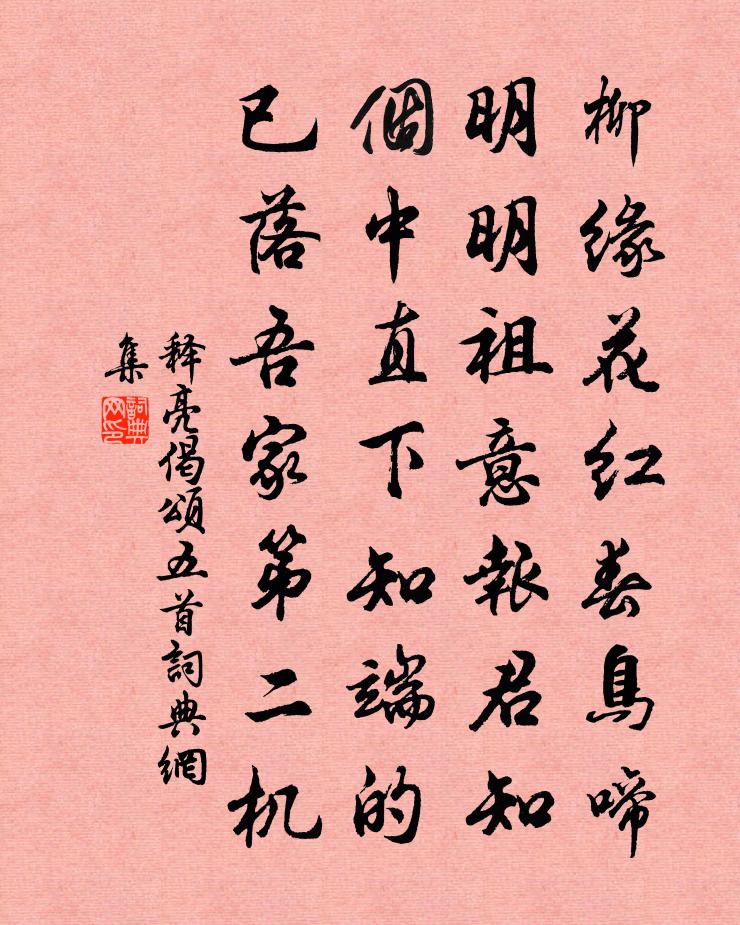 柳缘花红春鳥啼
明明祖意報君知
個中直下知端的
已落吾家第二机
释亮偈頌五首詞典網
集
詞典
网印